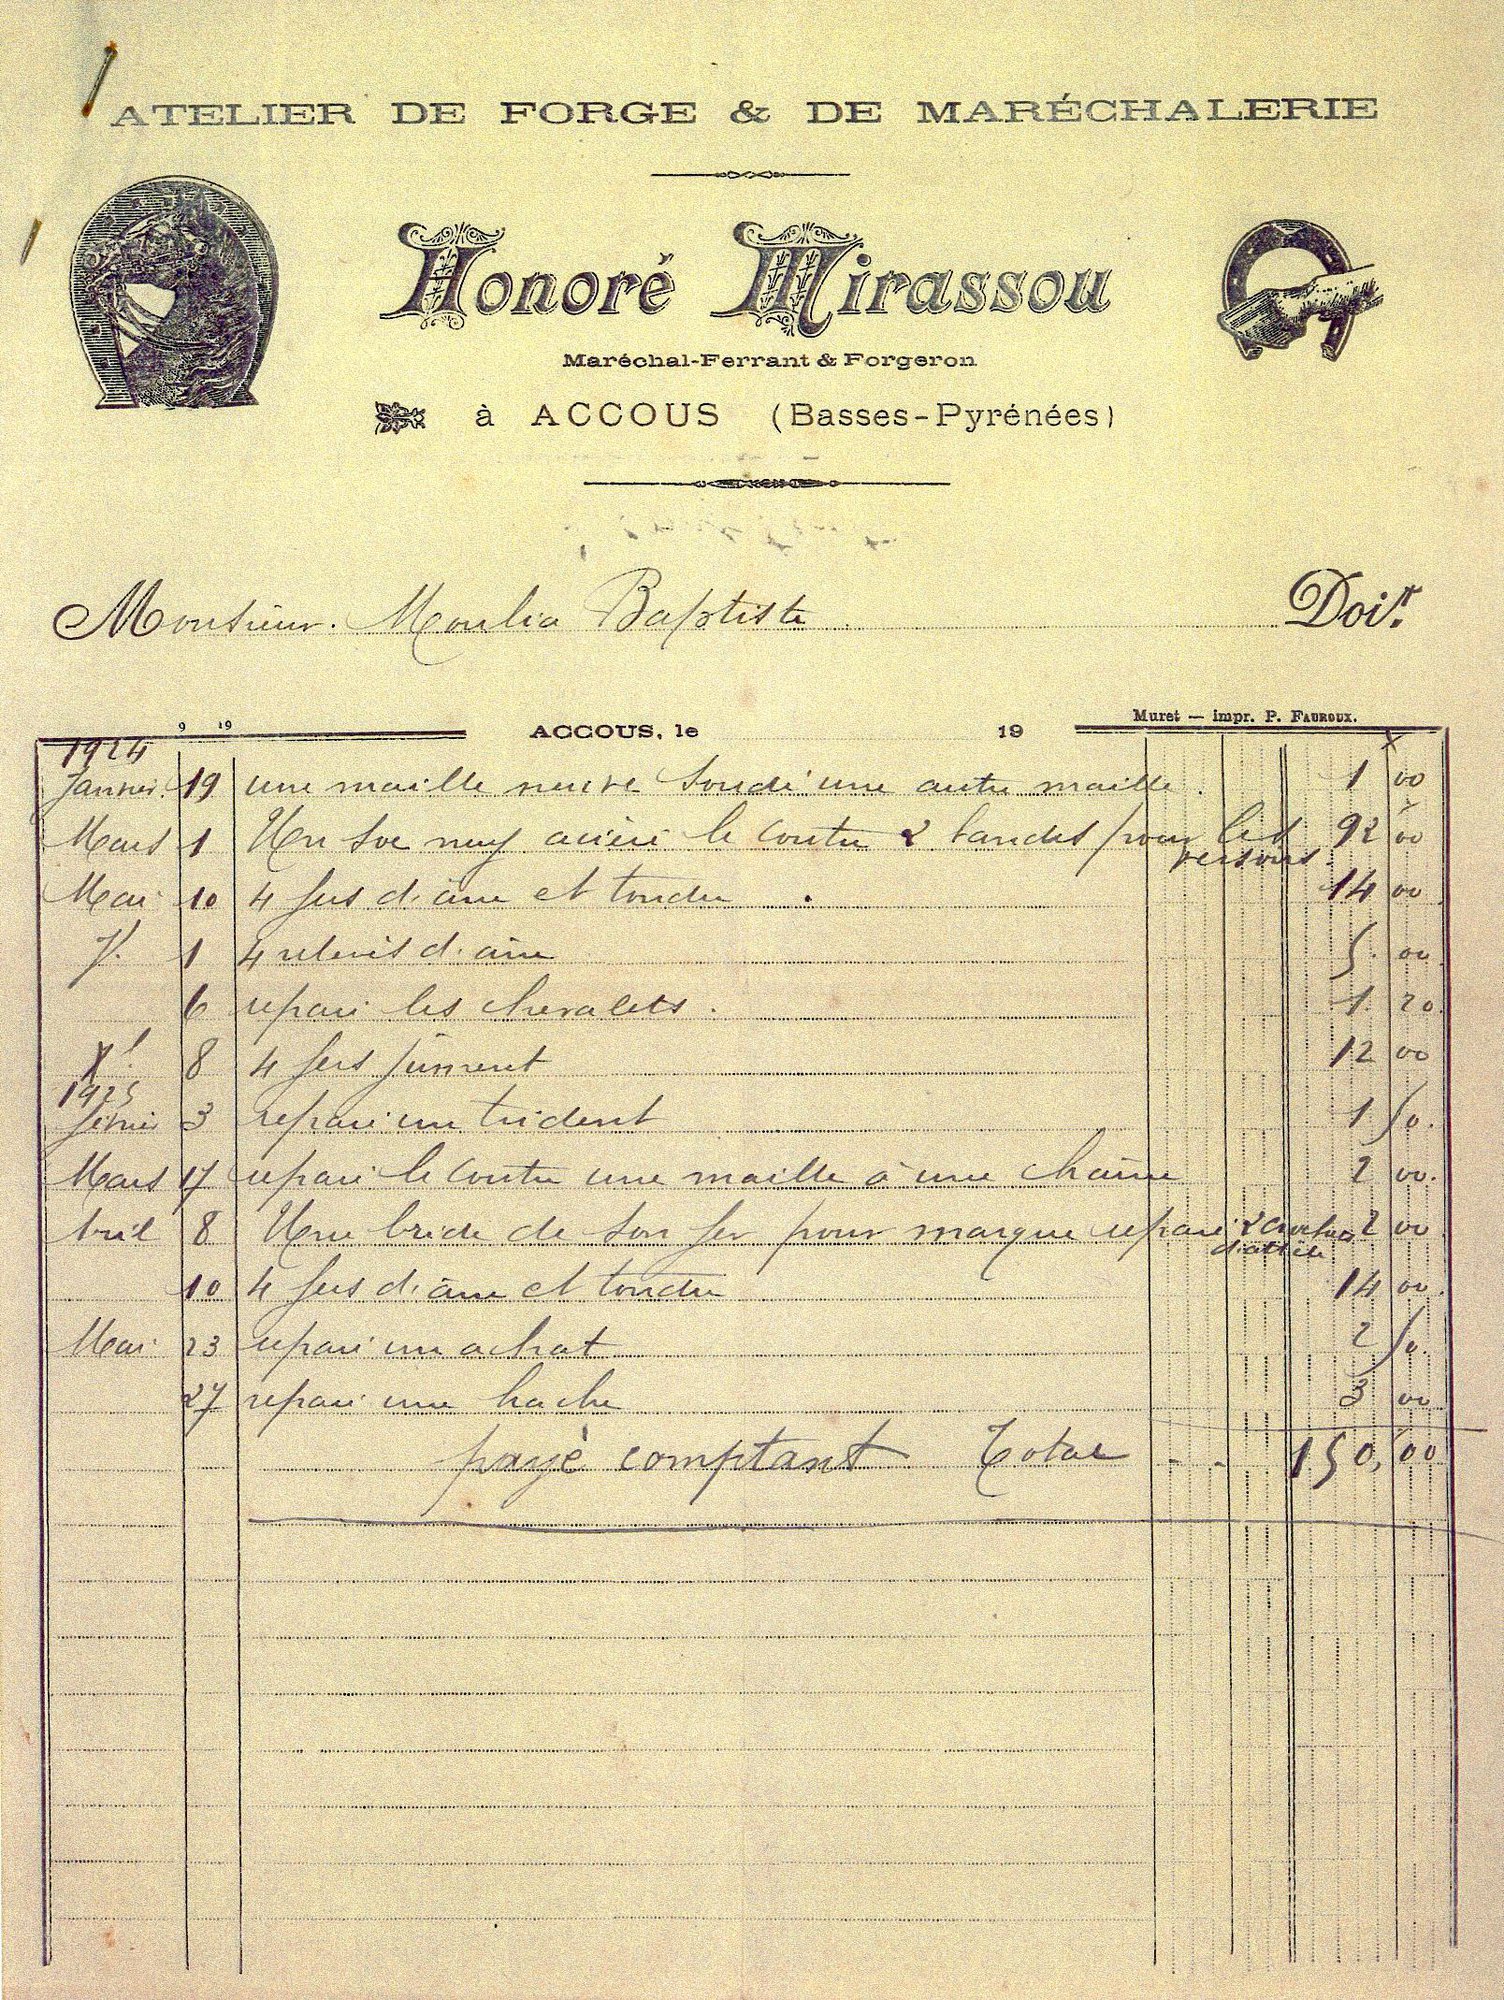 ATELIER DE FORGE & DE MARÉCHALERIE
Honoré Mirassou
Maréchal-Ferrant & Forgeron
à ACCOUS (Basses-Pyrénées)
Monsieur. Moulia Baptiste Doit
Muret — impr. P. FAUROUX.
9 19 ACCOUS, le 19
1924
Janvier 19 une maille neuve soudé une autre maille. 1 00
Mars 1 Un soc neuf acièré le coutre 2 bandes pour les 92 00
versoirs
Mai 10 4 fers d'âne et tondu 14 00
7. 1 4 relevés d'âne 5. 00
6 reparé les chevalets. 1. 20
8 4 fers jument 12 00
1925
fevrier 3 reparé un trident 1 50.
Mars 17 reparé le coutre une maille à une chaîne 2 00.
Avril 8 Une bride de son fer pour marque reparé 2 crochets 2 00
d'attele
10 4 fers d'âne et tondu 14 00.
Mai 23 reparé un achat 2 50.
27 reparé une hache 3 00
payé comptant Total 150,00